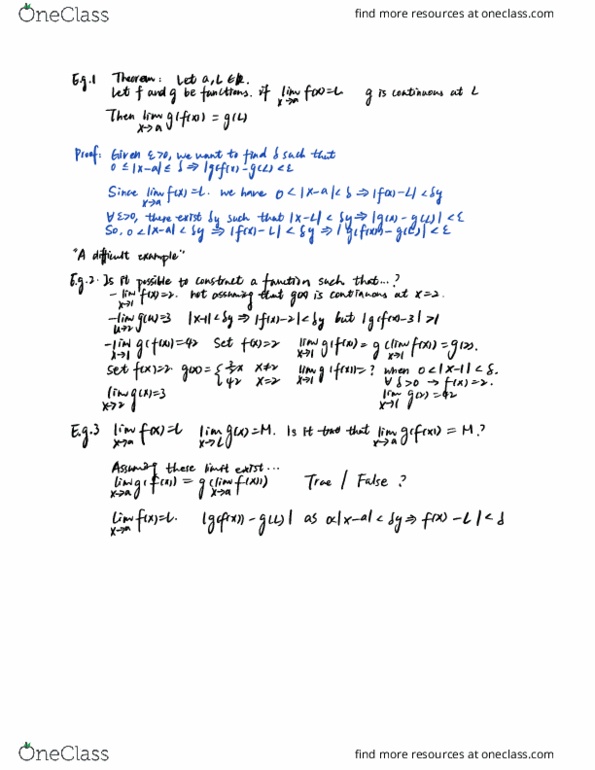 OneClass
find more resources at oneclass.com
E.g.1 Theorem: Let a, L ∈ ℝ.
Let f and g be functions. if lim x→a f(x)=L g is continuous at L
Then lim x→a g(f(x)) = g(L)
Proof: Given ε>0, we want to find δ such that
0 ≤ |x-a| ≤ δ ⇒ |g(f(x)-g(L)| < ε
Since lim x→a f(x)=L. we have 0 < |x-a| < δ ⇒ |f(x)-L| < δy
∀ε>0, there exist δy such that |x-L| < δy ⇒ |g(x)-g(L)| < ε
So, 0<|x-a| < δy ⇒ |f(x)-L| < δy ⇒ |g(f(x))-g(L)| < ε
"A difficult example"
E.g.2. Is it possible to construct a function such that...?
- lim x→1 f(x)=2. not assuming that g(x) is continuous at x=2.
- lim u→2 g(u)=3 |x-1|<δy ⇒ |f(x)-2|<δy but |g(f(x)-3| >1
- lim x→1 g(f(x))=42 Set f(x)=2 lim x→1 g(f(x)) = g(lim x→1 f(x)) = g(2).
set f(x)=2. g(x) = { 3/2 x x≠2 lim x→1 g(f(x))=? when 0<|x-1|<δ.
42 x=2 ∀ δ>0 → f(x)=2.
lim x→2 g(x)=3 lim x→1 g(2)=42
E.g.3 lim x→a f(x)=L lim x→L g(x)=M. Is it that lim x→a g(f(x)) = M.?
Assuming these limit exist...
lim x→a g(f(x)) = g(lim x→a f(x)) True / False ?
lim x→a f(x)=L. |g(f(x))-g(L)| as 0<|x-a|<δy ⇒ f(x)-L|<δ
OneClass
find more resources at oneclass.com